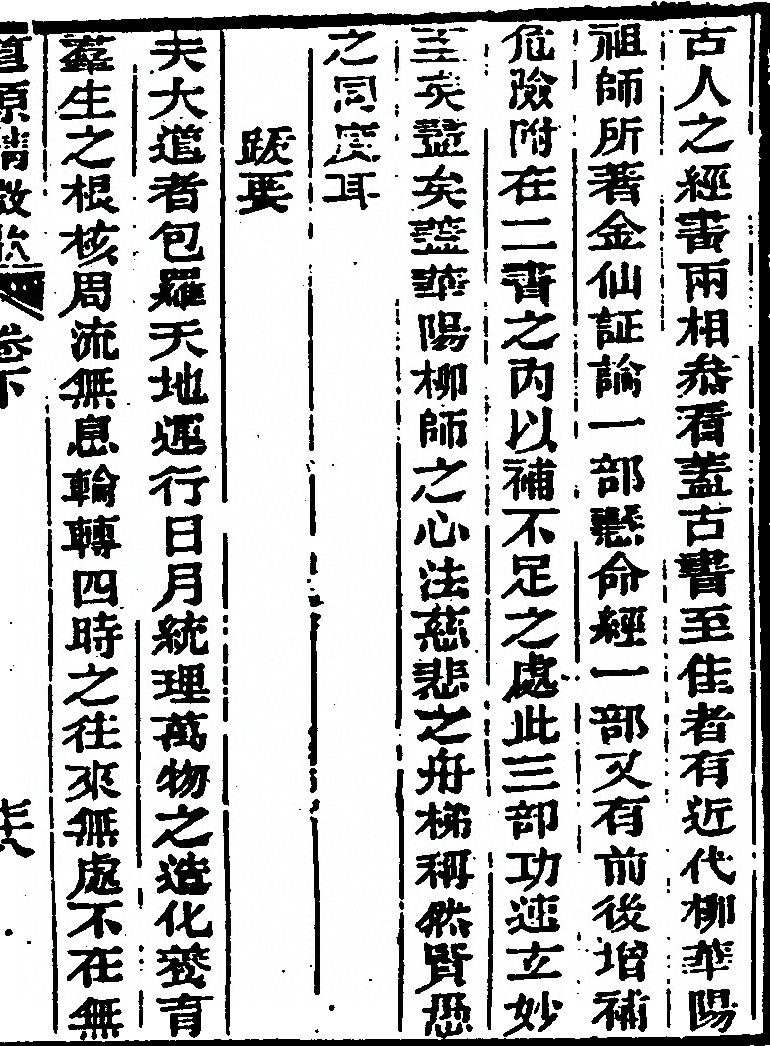 古人之經書兩相叅看蓋古書至佳者有近代柳華陽
祖師所著金仙証論一部慧命經一部又有前後增補
危險附在二書之內以補不足之處此三部功速立妙
至矣盡矣蓋華陽柳師之心法慈悲之舟梯稱然賢恐
之同度耳
跋要
夫大道者包羅天地運行日月統理萬物之造化養育
羣生之根核周流無息輪轉四時之往來無處不在無
道原精微歌 卷下